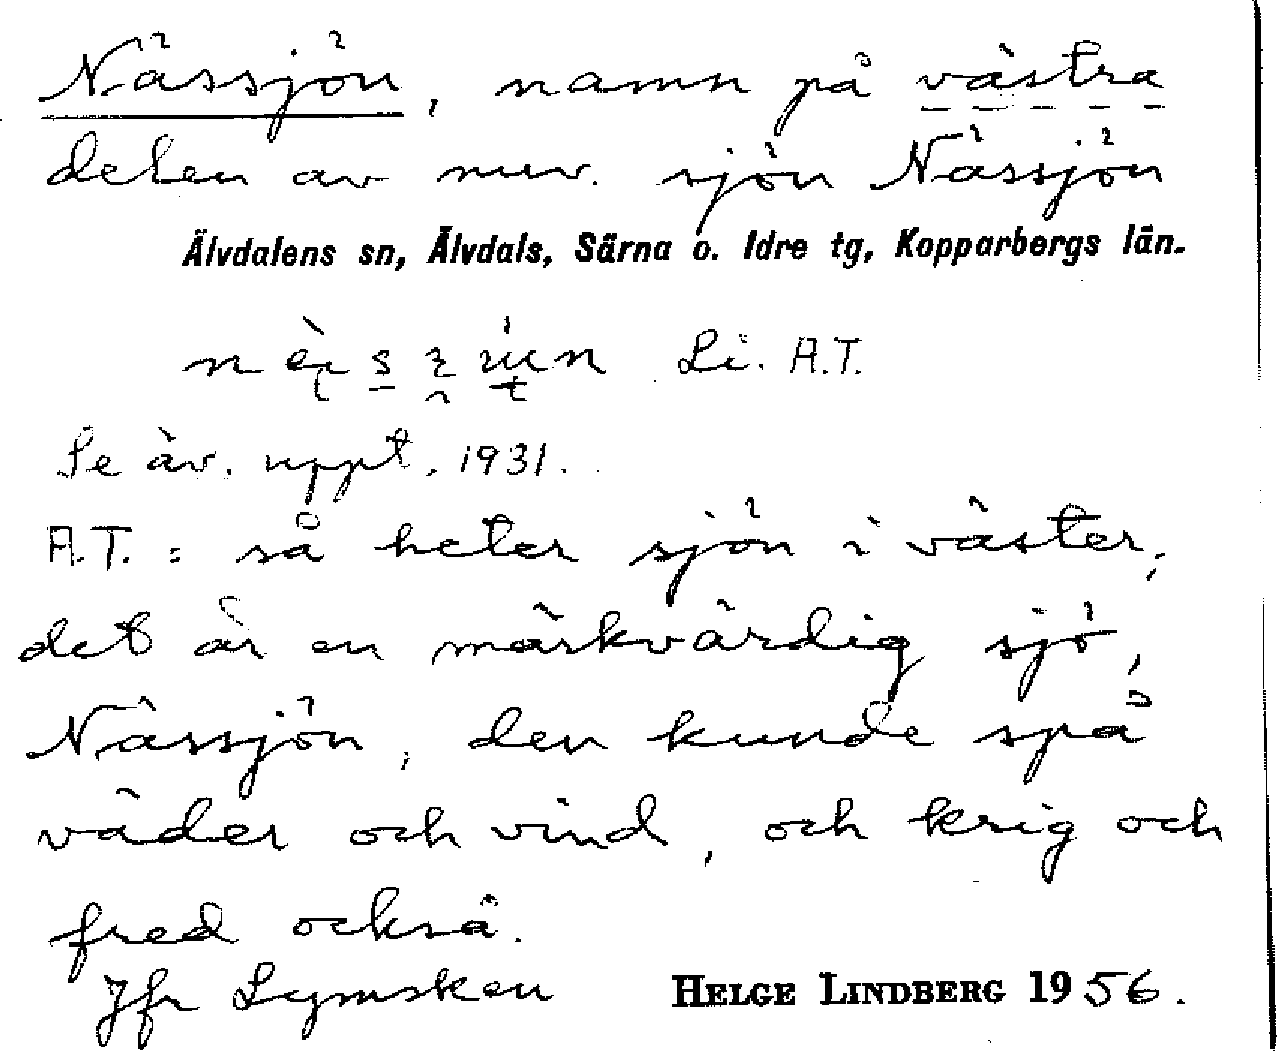 Nässjön, namn på västra
delen av nuv. sjön Nässjön
Älvdalens sn, Älvdals, Särna o. Idre tg, Kopparbergs län.
Li. A.T.
Se äv. uppt. 1931.
A.T. : så heter sjön i väster,
det är en märkvärdig sjö,
Nässjön, den kunde spå
väder och vind, och krig och
fred också.
Jfr Lymsken HELGE LINDBERG 1956.